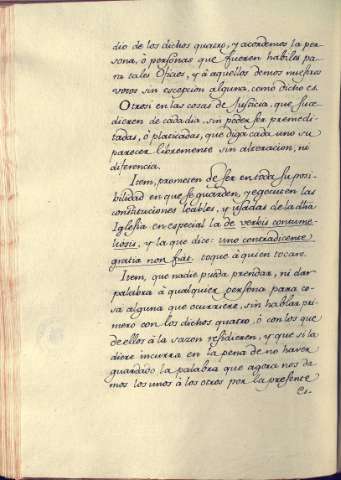 dio de los dichos quatro, y acordemos la per-
sona, ò personas que fueren habiles pa-
ra tales Oficios, y à aquellos demos nuestros
votos sin escepcion alguna, como dicho es.
Otrosi en las cosas de Justicia, que suce-
dieren de cada dia, sin poder ser premedi-
tadas, ò platicadas, que diga cada uno su
parecer libremente sin alteracion, ni
diferencia.
Item, prometen de ser en toda su posi-
bilidad en que se guarden, y egecuten las
constituciones loables, y usadas de la dha
Iglesia en especial la de verbis contume-
liosis, y la que dice: uno contradicente
gratia non fiat toque à quien tocare.
Item, que nadie pueda prendar, ni dar
palabra à qualquier persona para co-
sa alguna que ocurriere, sin hablar pri-
mero con los dichos quatro, ò con los que
de ellos à la sazon residieren, y que si la
diere incurra en la pena de no haver
guardado la palabra que agora nos da-
mos los unos à los otros por la presente
es-